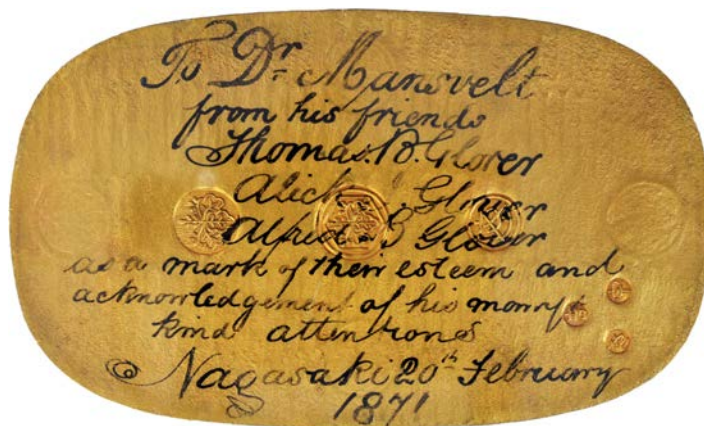 To Dr Mansvelt
from his friends
Thomas. B. Glover
Alick Glover
Alfred B Glover
as a mark of their esteem and
acknowledgement of his many
kind attentions
Nagasaki 20th February
1871